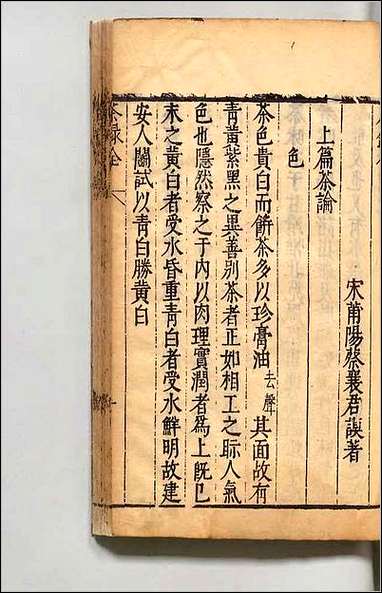 宋莆陽蔡襄君謨著
上篇茶論
色
茶色貴白而餅茶多以珍膏油去聲其面故有
青黃紫黑之異善別茶者正如相工之眎人氣
色也隱然察之于內以肉理實潤者爲上既已
末之黃白者受水昏重青白者受水鮮明故建
安人鬬試以青白勝黃白
茶錄全